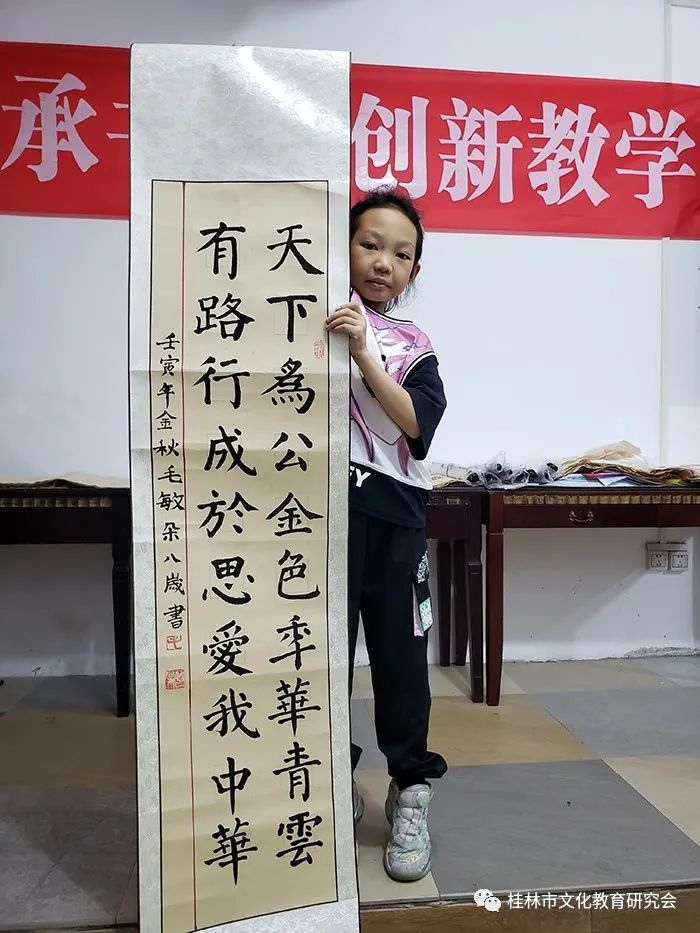 承 创新教学
天下爲公金色秊華青雲
有路行成於思愛我中華
壬寅年金秋毛敏朵八歲書
桂林市文化教育研究会